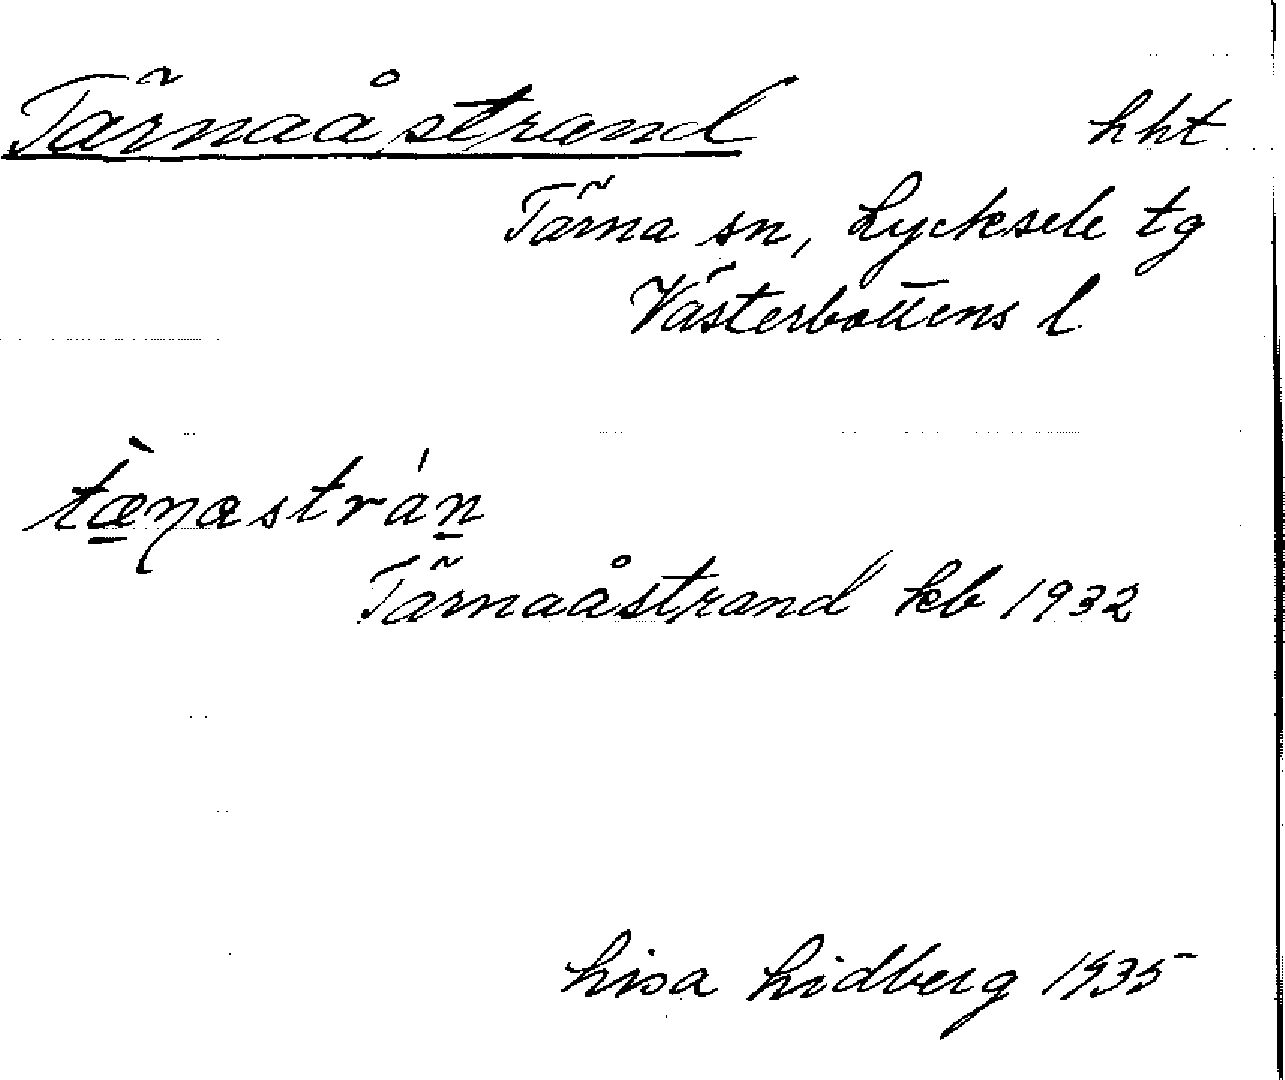 Tärnaåstrand hht
Tärna sn, Lycksele tg
Västerbottens l
Tärnaåstrand kb 1932
Lisa Lidberg 1935